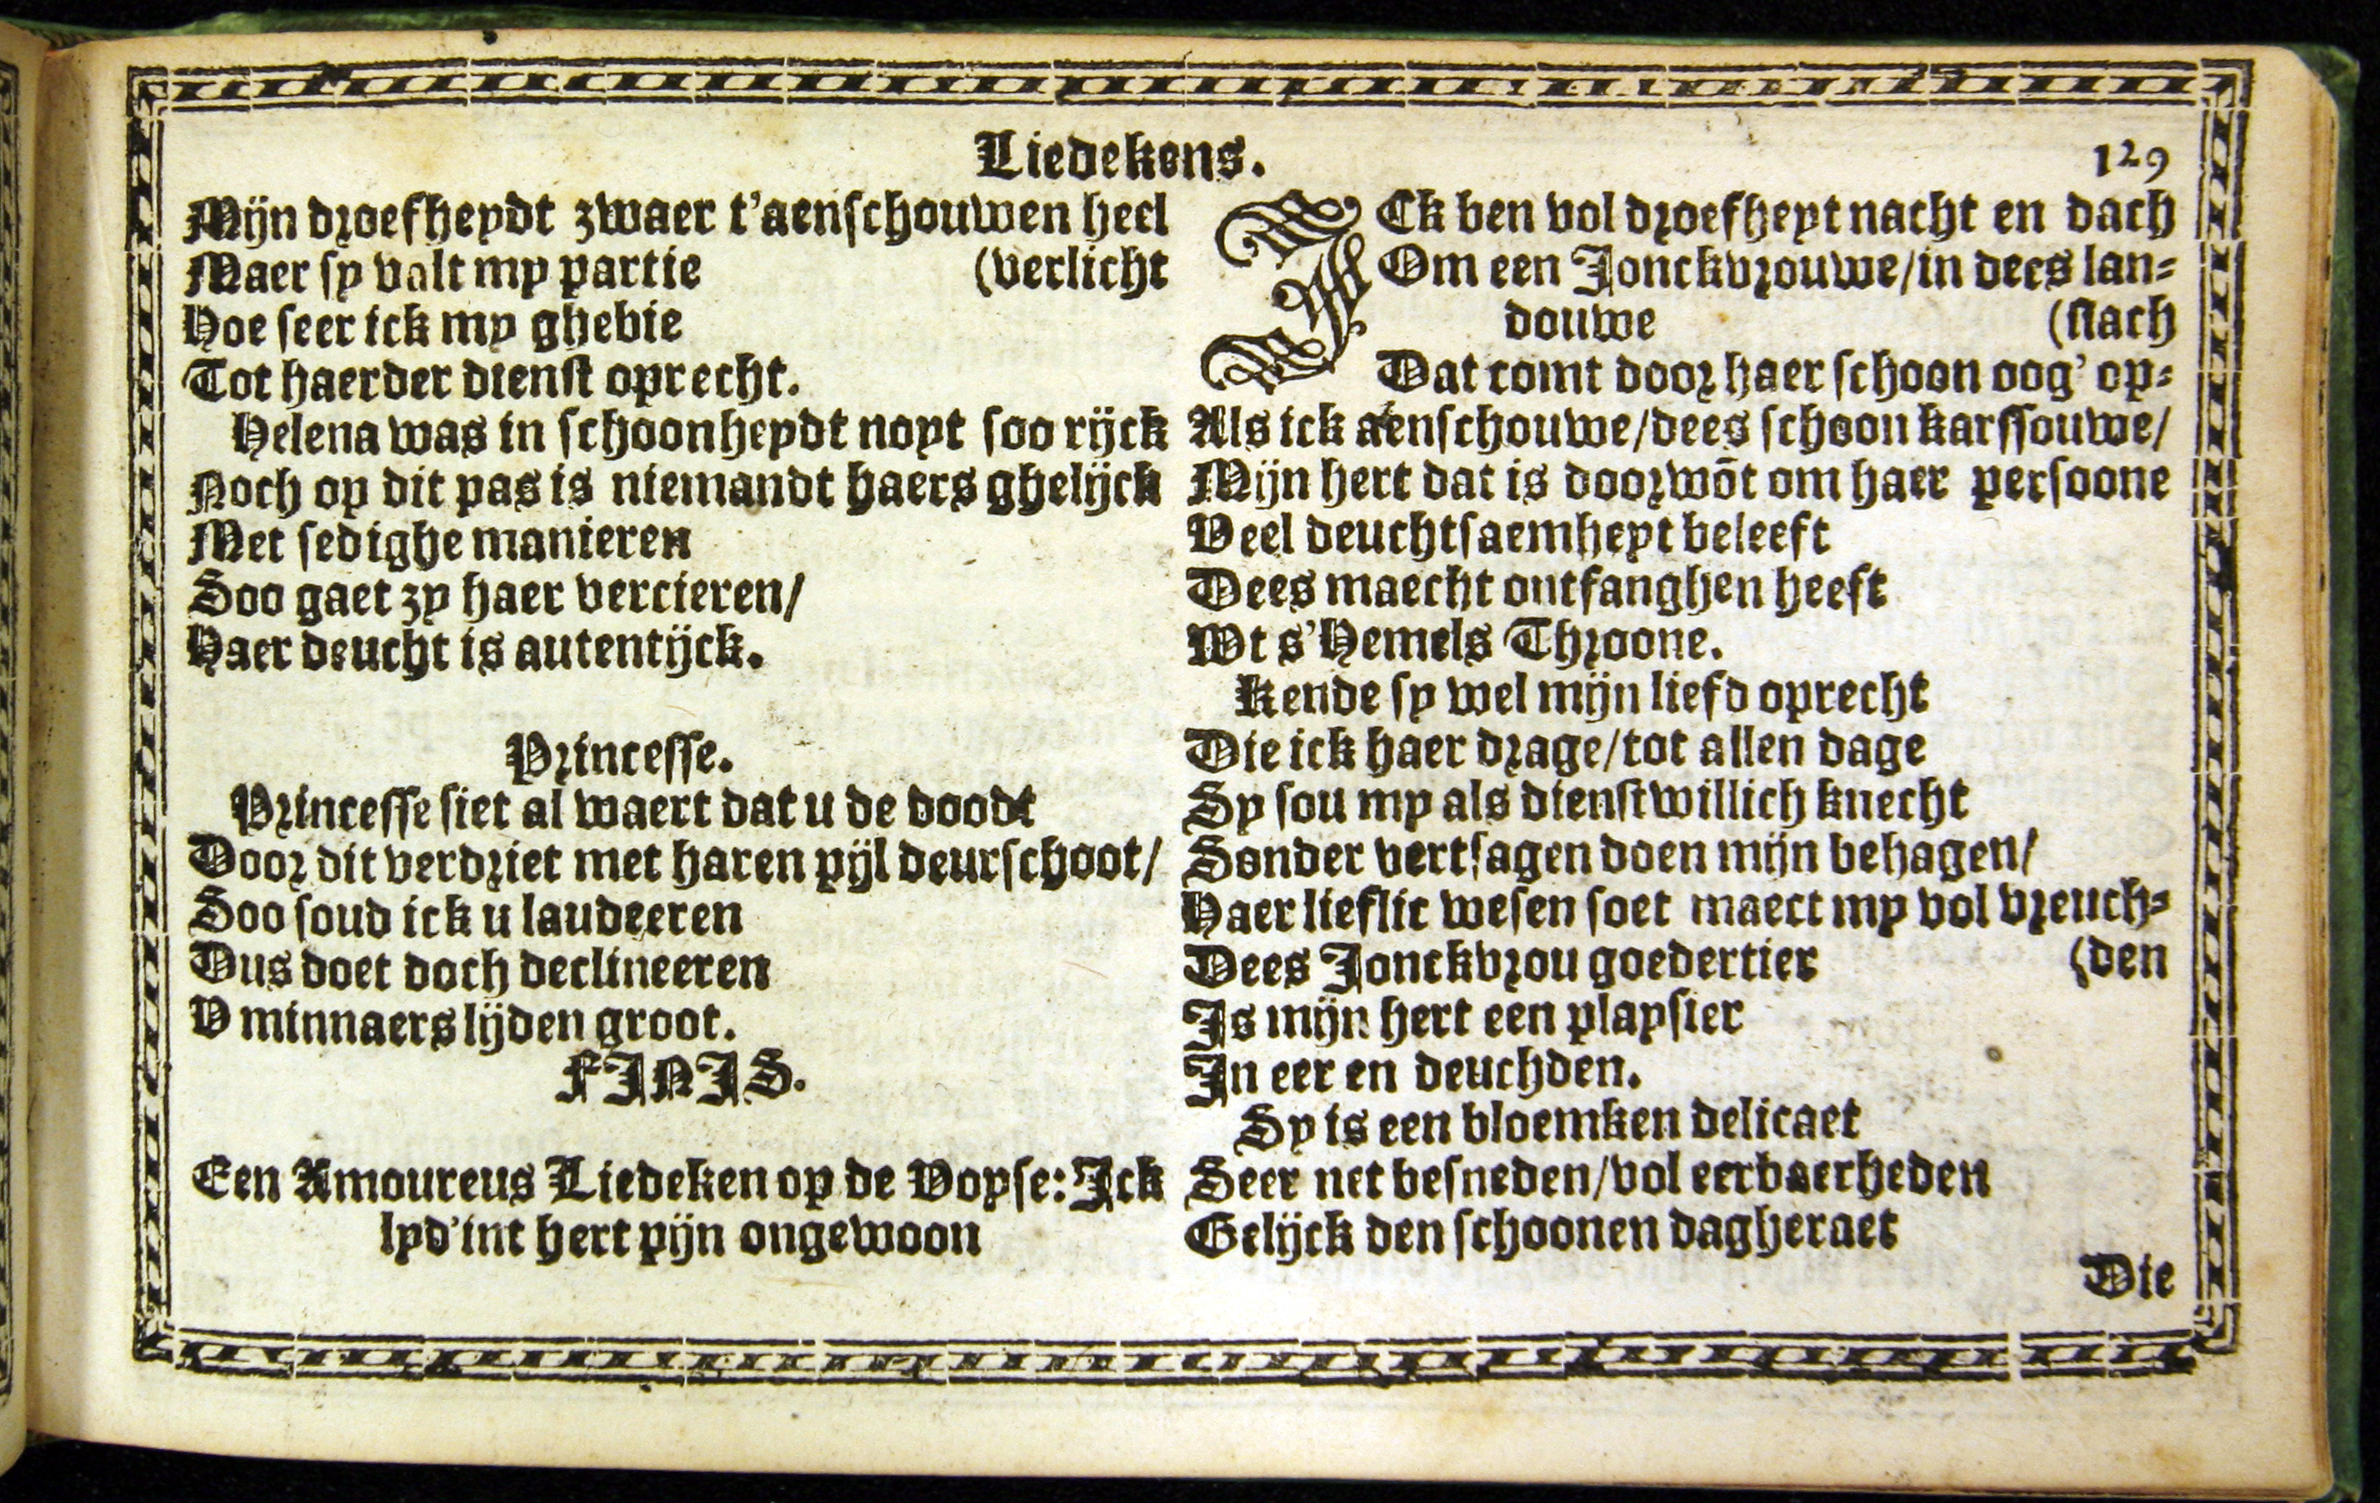 Liedekens.
129
Mijn droefheydt zwaer t'aenschouwen heel
Maer sy valt my partie (verlicht
Hoe seer ick my ghebie
Tot haerder dienst oprecht.
Helena was in schoonheydt noyt soo rijck
Noch op dit pas is niemandt haers ghelijck
Met sedighe manieren
Soo gaet zy haer vercieren/
Haer deucht is autentijck.
Princesse.
Princesse siet al waert dat u de doodt
Door dit verdriet met haren pijl deurschoot/
Soo soud ick u laudeeren
Dus doet doch declineeren
V minnaers lijden groot.
FINIS.
Een Amoureus Liedeken op de Voyse: Ick
lyd'int hert pijn ongewoon
ICk ben vol droefheyt nacht en dach
Om een Jonckvrouwe/in dees lan-
douwe (slach
Dat comt door haer schoon oog' op-
Als ick aenschouwe/dees schoon karssouwe/
Mijn hert dat is doorwōt om haer persoone
Veel deuchtsaemheyt beleeft
Dees maecht ontfanghen heeft
Wt s'Hemels Throone.
Kende sy wel mijn liefd oprecht
Die ick haer drage/tot allen dage
Sy sou my als dienstwillich knecht
Sonder vertsagen doen mijn behagen/
Haer lieflic wesen soet maect my vol vreuch-
Dees Jonckvrou goedertier (den
Is mijn hert een playsier
In eer en deuchden.
Sy is een bloemken delicaet
Seer net besneden/vol eerbaerheden
Gelijck den schoonen dagheraet
Die